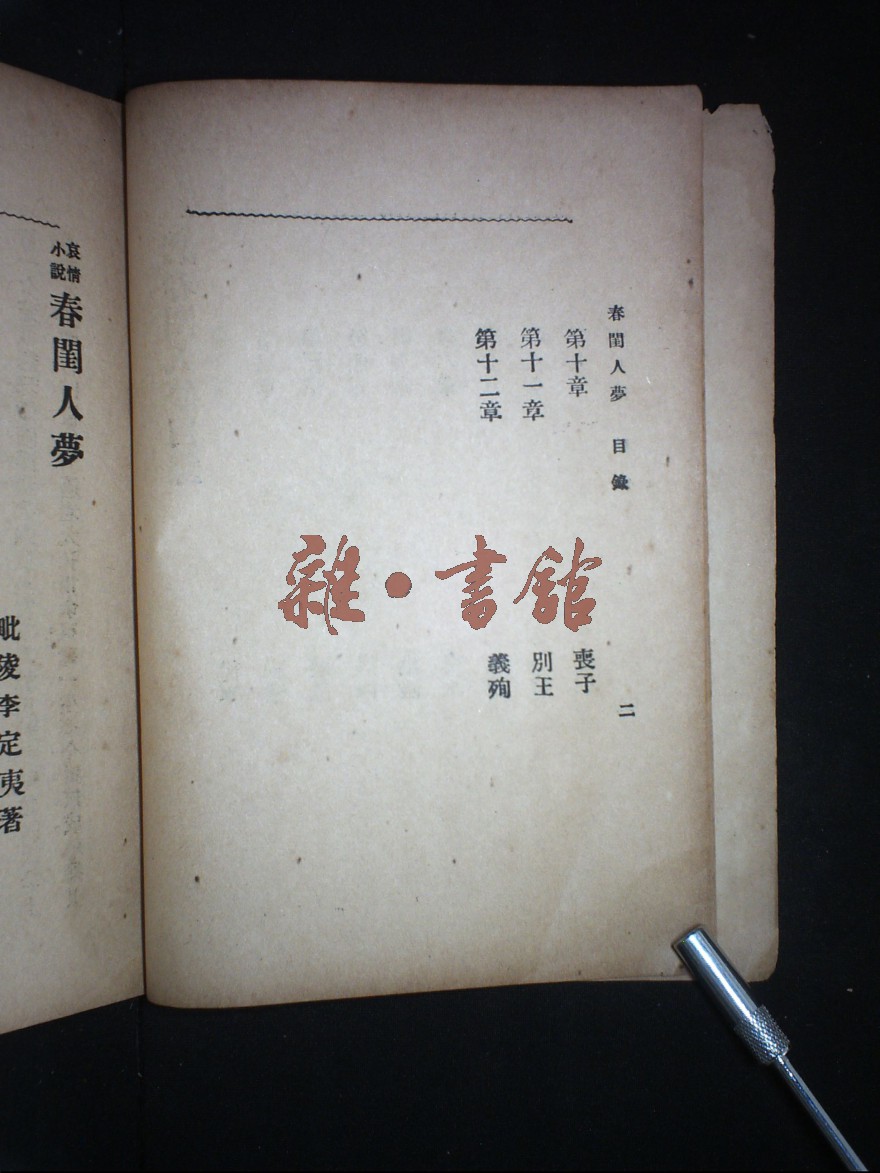 春閨人夢 目錄 二
第十章 喪子
第十一章 別王
第十二章 義殉
哀情小說 春閨人夢
毗陵李定夷著
雜·書館